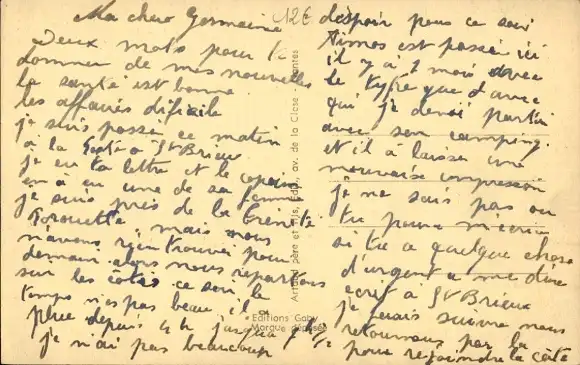 Ma cher Germaine
Deux mots pour te
donner de mes nouvelles
la santé est bonne
les affaires dificile
je suis passé ce matin
a la Poste a St Brieuc
je eu ta lettre et le copain
en a eu une de sa femme
je suis près de la
mais nous
n'avons rien trouver pour
demain alors nous repartons
sur les côtes ce soir le
temps n'es pas beau il a
plue depuis 4 h jusqua
je n'ai pas beaucoup
12€
d'espoir pour ce soir
est passé ici
il y a 1 mois avec
le type que d'avec
qui je devai partir
avec son camping
et il à laissé une
mauvaise impression
je ne sais pas ou
tu pourra m'écrire
si tu a quelque chose
d'urgent a me dire
ecrit à St Brieux
je ferais suivre nous
retournons par la
pour rejoindre la côte
Artaud, père et fils, Édit., av. de la Close, Nantes
Editions Gaby
Marque déposée